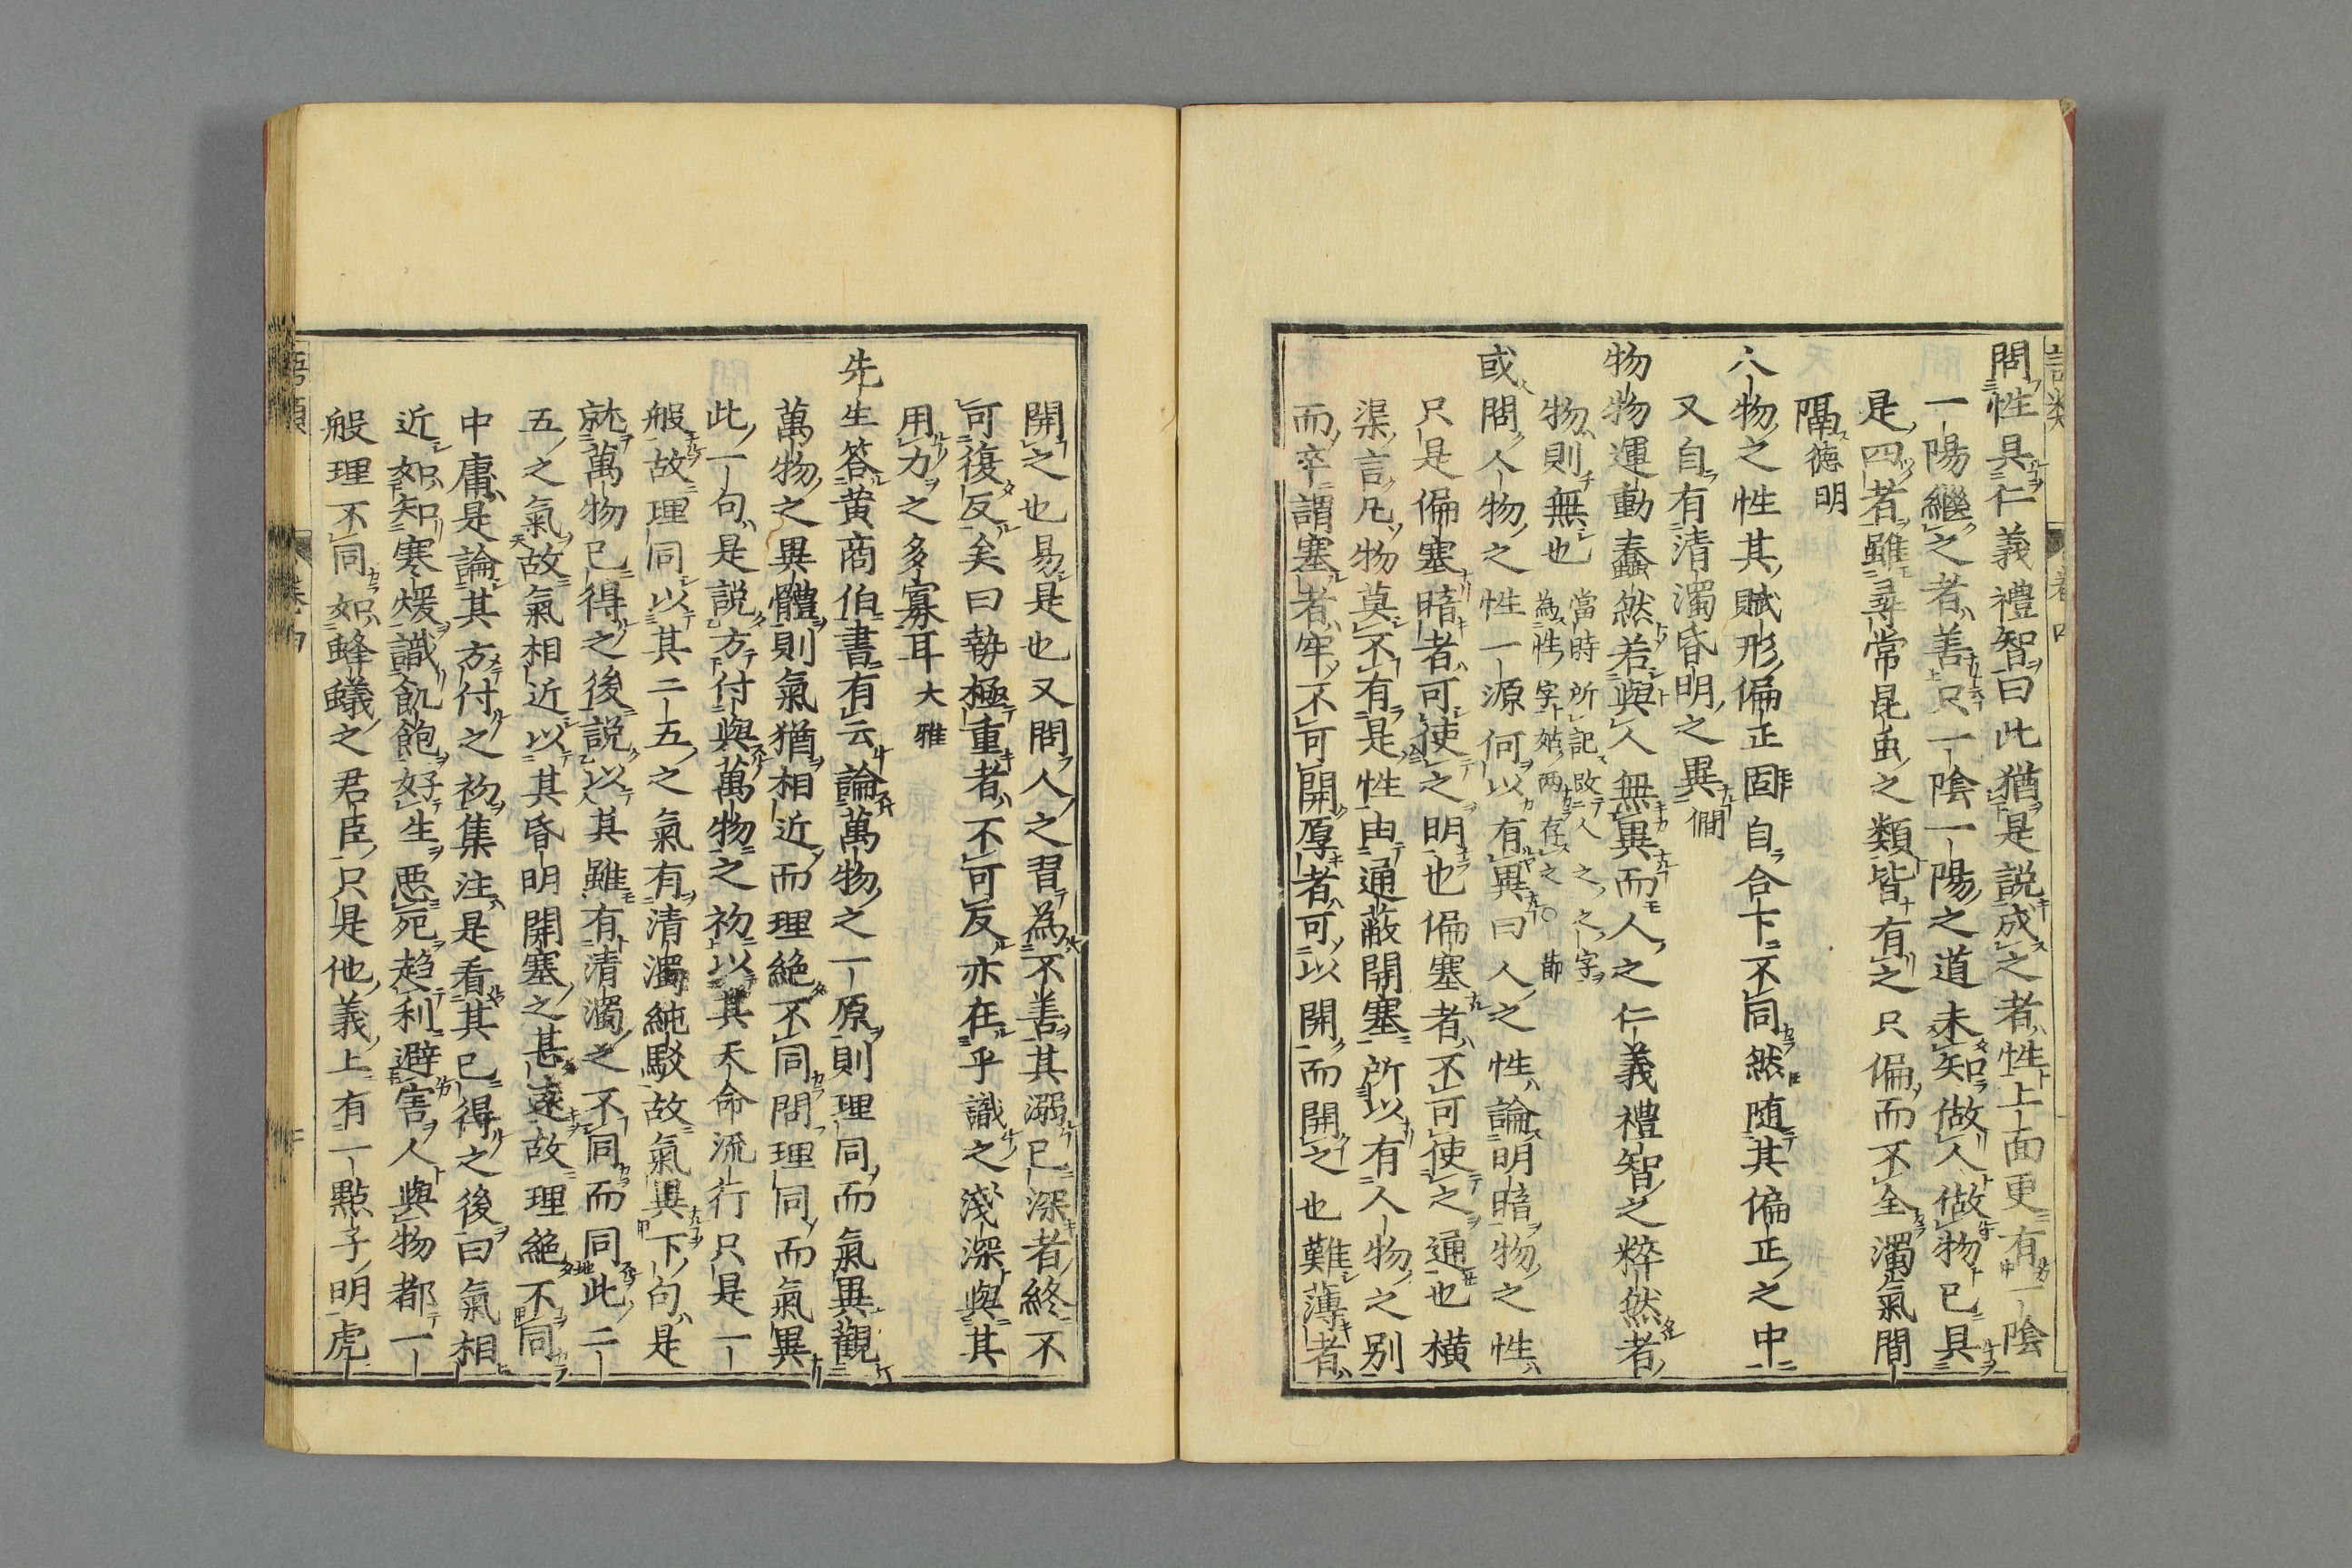 問性具仁義禮智曰此猶是説成之者性上面更有一陰
一陽繼之者善只一陰一陽之道未知做人做物已具
是四者雖尋常昆虫之類皆有之只偏而不全濁氣間
隔德明
人物之性其賦形偏正固自合下不同然随其偏正之中
又自有清濁昏明之異僩
物物運動蠢然若與人無異而人之仁義禮智之粹然者
物則無也當時所記改人之之字
為性字姑两存之○節
或問人物之性一源何以有異曰人之性論明暗物之性
只是偏塞暗者可使之明也偏塞者不可使之通也横
渠言凡物莫不有是性由通蔽開塞所以有人物之别
而卒謂塞者牢不可開厚者可以開而開之也難薄者
開之也易是也又問人之習為不善其溺已深者終不
可復反矣曰勢極重者不可反亦在乎識之淺深與其
用力之多寡耳大雅
先生答黄商伯書有云論萬物之一原則理同而氣異觀
萬物之異體則氣猶相近而理絶不同問理同而氣異
此一句是説方付與萬物之初以其天命流行只是一
般故理同以其二五之氣有清濁純駁故氣異下句是
就萬物已得之後説以其雖有清濁之不同而同此二
五之氣故氣相近以其昏明開塞之甚遠故理絶不同
中庸是論其方付之初集注是看其已得之後曰氣相
近如知寒煖識飢飽好生惡死趋利避害人與物都一
般理不同如蜂蟻之君臣只是他義上有一點子明虎